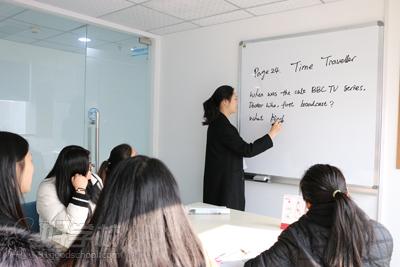 Page 24. Time Traveller
When was the cult BBC TV series,
Doctor Who, first broadcast?
What kind